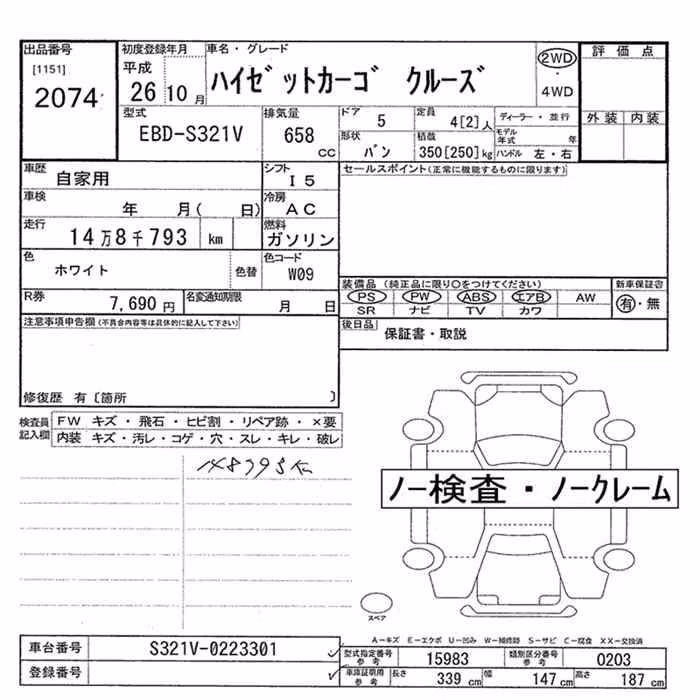 出品番号 初度登録年月 車名・グレード 評価点
[1151] 平成 ハイゼットカーゴ クルーズ 2WD
2074 26 10 月 ・ 4WD
型式 排気量 ドア 5 定員 4[2]人 ディーラー・並行 外装 内装
EBD-S321V 658 CC 形状 バン 積載 350[250]kg モデル年式 年
ハンドル 左・右
車歴 自家用 シフト I5 セールスポイント(正常に機能するものに限ります)
車検 年 月( 日) 冷房 AC
走行 14万8千793 km 燃料 ガソリン
色 ホワイト 色替 色コード W09 装備品 (純正品に限り○をつけてください) 新車保証書
PS PW ABS エアB AW 有・無
R券 7,690 円 名変通知期限 月 日 SR ナビ TV カワ
注意事項申告欄(不具合内容等は具体的に記入して下さい) 後日品 保証書・取説
修復歴 有〔箇所 〕
検査員記入欄 FW キズ・飛石・ヒビ割・リペア跡・×要
内装 キズ・汚レ・コゲ・穴・スレ・キレ・破レ
148793K
ノー検査・ノークレーム
スペア
A-キズ E-エクボ U-凹み W-補修跡 S-サビ C-腐食 XX-交換済
車台番号 S321V-0223301 型式指定番号 参考 15983 類別区分番号 参考 0203
登録番号 車庫証明用 参考 長さ 339 cm 幅 147 cm 高さ 187 cm